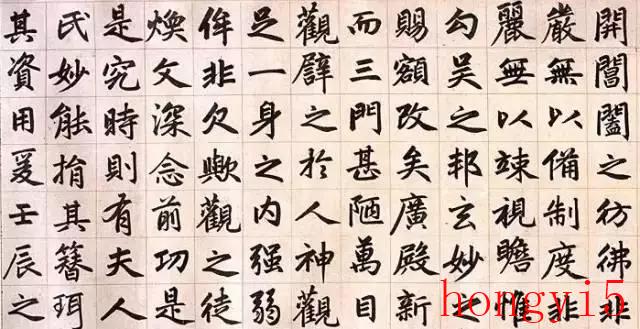 開閶闔之彷彿非
嚴無以備制度非
麗無以竦視瞻惟
勾吳之邦玄妙之
賜額改矣廣殿新
而三門甚陋萬目
觀譬之於人神觀
足一身之内强弱
侔非欠歟觀之徒
煥文深念前功是
是究時則有夫人
氏妙能捐其簪珥
其資用爰壬辰之
hongyi5